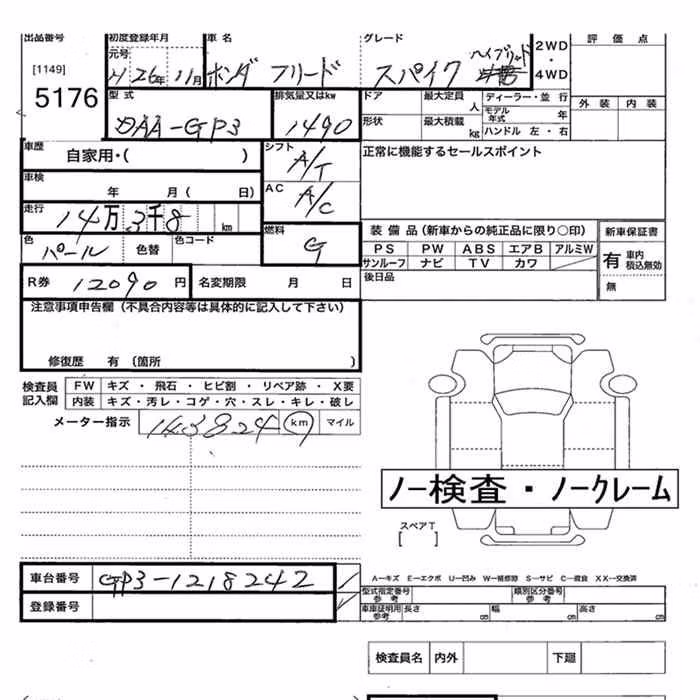 出品番号 初度登録年月 車名 グレード 評価点
元号
[1149] H26年11月 ホンダ フリード スパイク ハイブリッド 2WD・4WD
5176 型式 排気量又はkw ドア 最大定員 人 ディーラー・並行 外装 内装
DAA-GP3 1490 形状 最大積載 kg モデル年式 年
ハンドル 左・右
車歴 自家用・( ) シフト A/T 正常に機能するセールスポイント
車検 年 月( 日) AC A/C
走行 14万3千8 km 燃料 G 装備品(新車からの純正品に限り○印) 新車保証書
色 パール 色替 色コード PS PW ABS エアB アルミW 有 車内積込無効
サンルーフ ナビ TV カワ
R券 12090円 名変期限 月 日 後日品 無
注意事項申告欄(不具合内容等は具体的に記入して下さい)
修復歴 有(箇所 )
検査員記入欄 FW キズ・飛石・ヒビ割・リペア跡・X要
内装 キズ・汚レ・コゲ・穴・スレ・キレ・破レ
メーター指示 143824 km マイル
ノー検査・ノークレーム
スペアT
[ ]
車台番号 GP3-1218242 A−キズ E−エクボ U−凹み W−補修跡 S−サビ C−腐食 XX−交換済
登録番号 型式指定番号参考 類別区分番号参考
車庫証明用参考 長さ cm 幅 cm 高さ cm
検査員名 内外 下廻